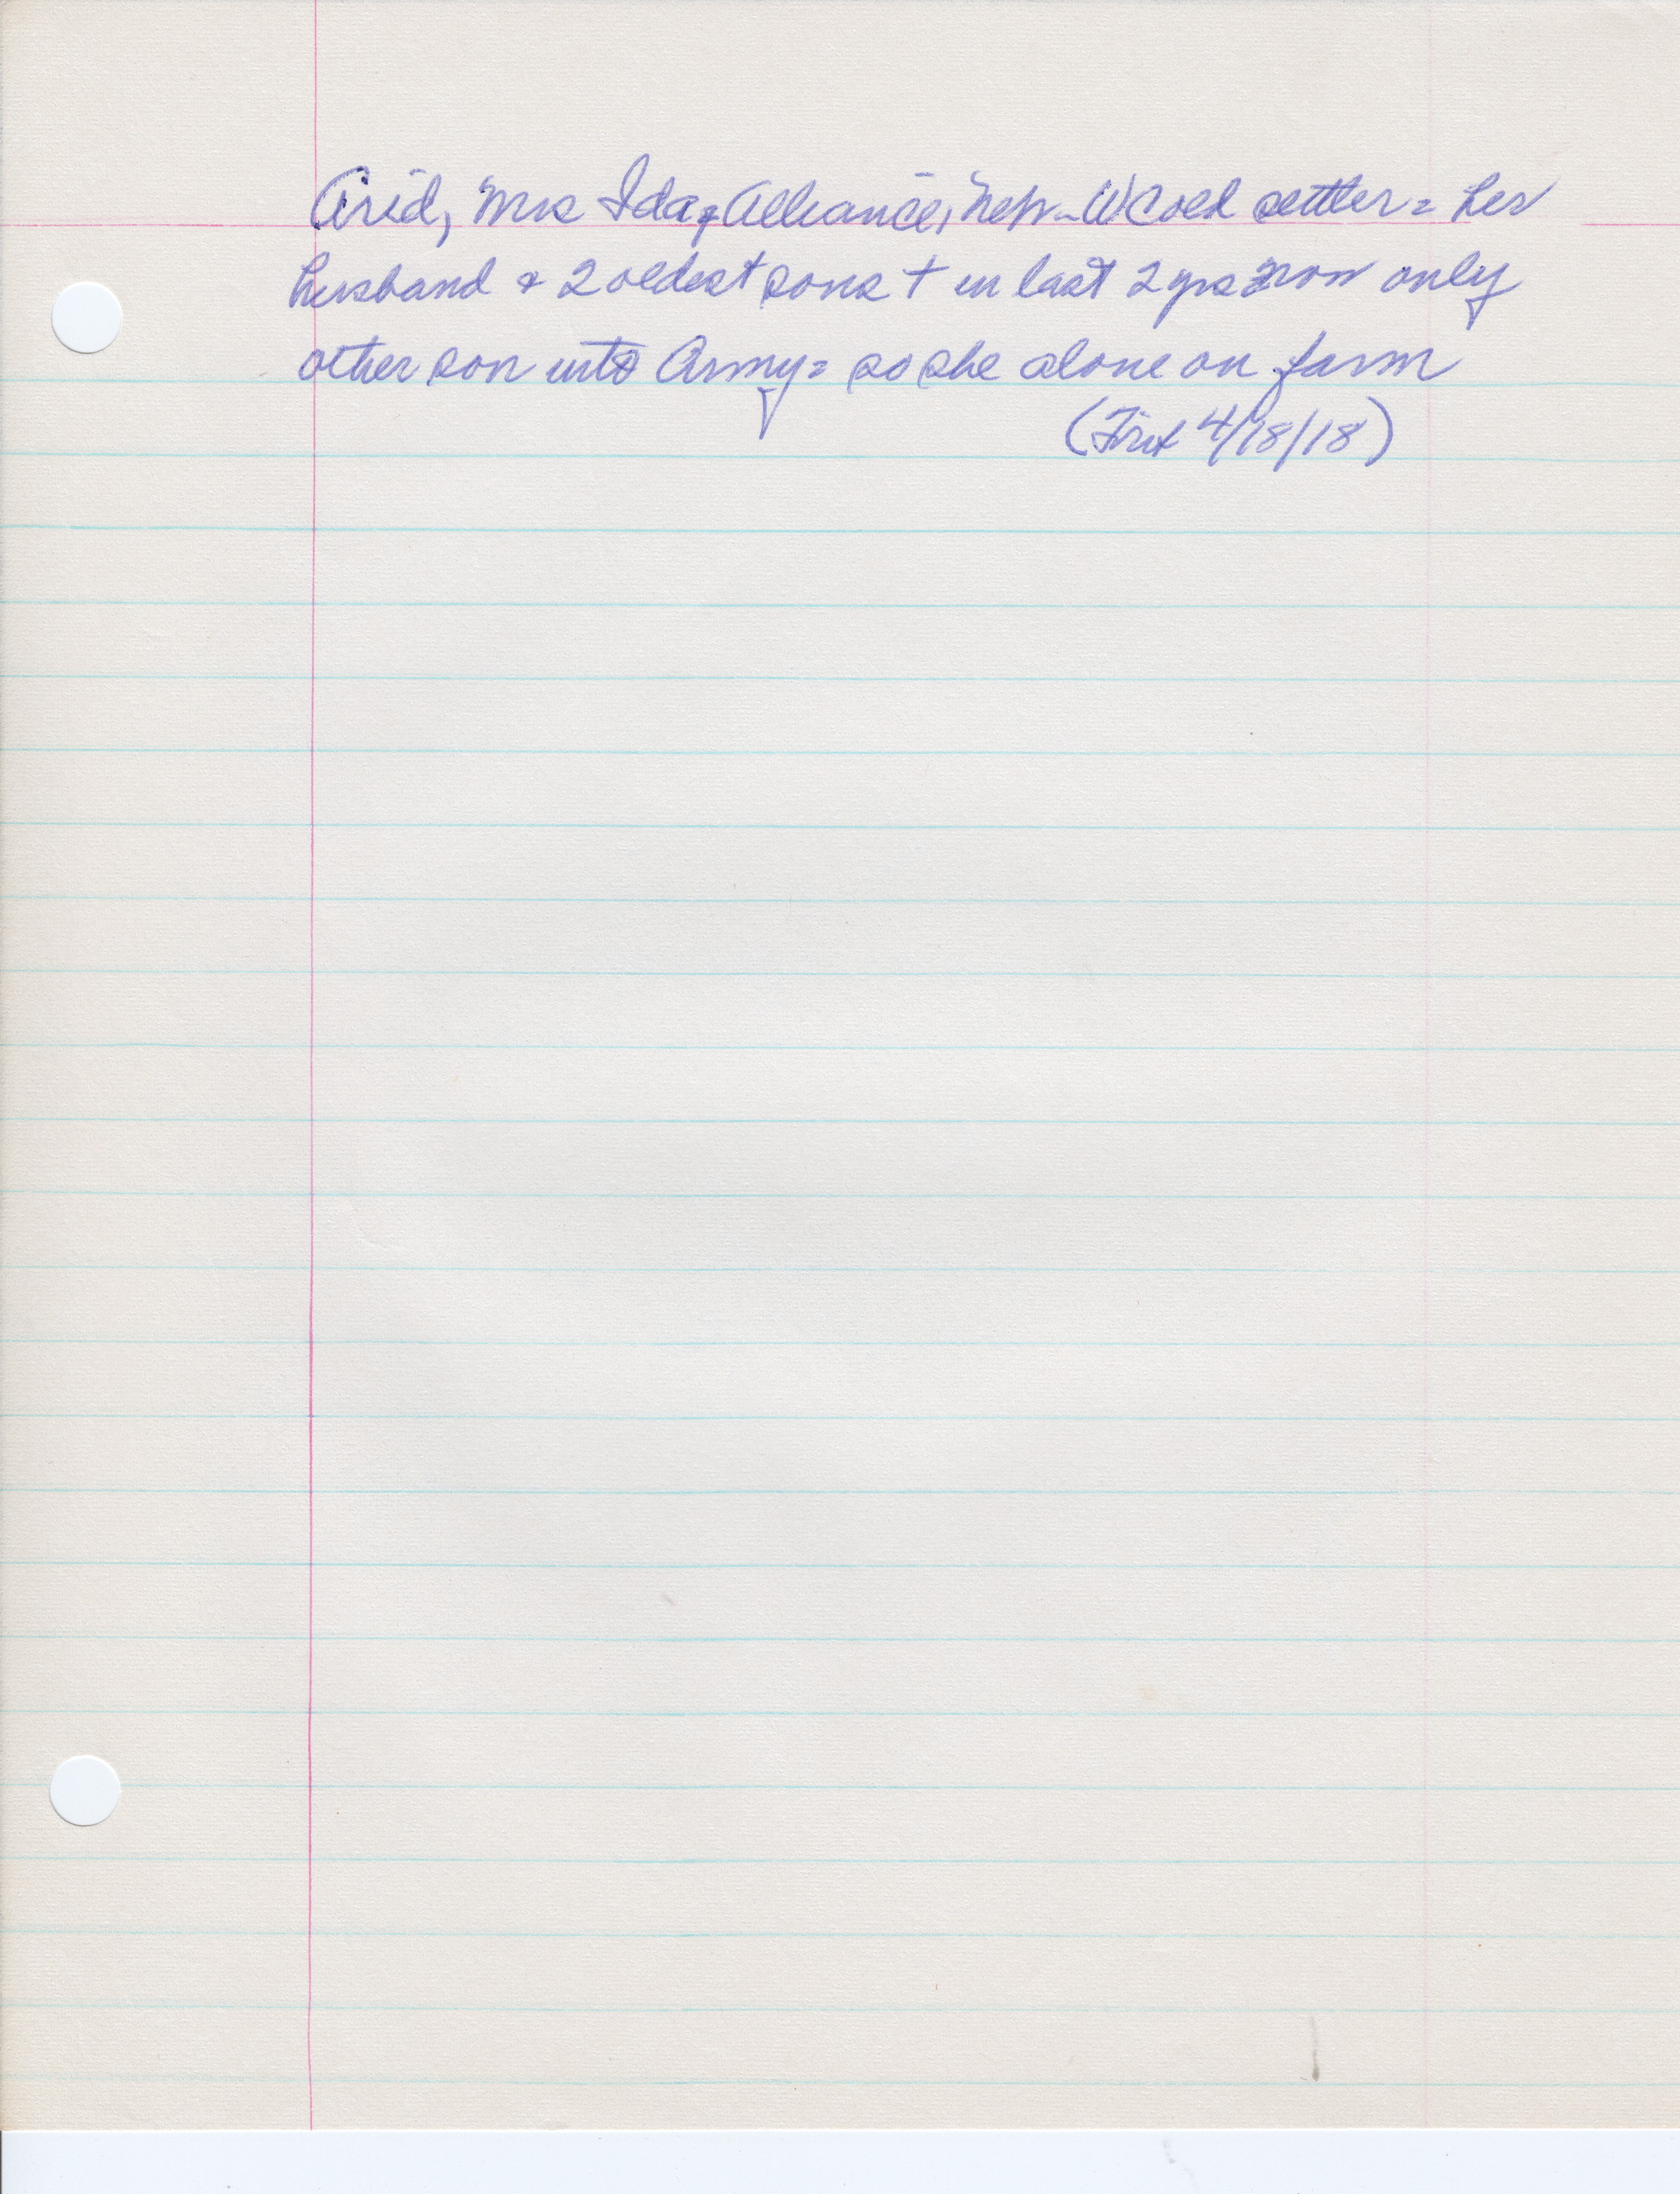 Arid, Mrs Ida, Alliance, Neb - WC old settler = her
husband & 2 oldest sons † in last 2 yrs = now only
other son into Army = so she alone on farm
(First 4/18/18)